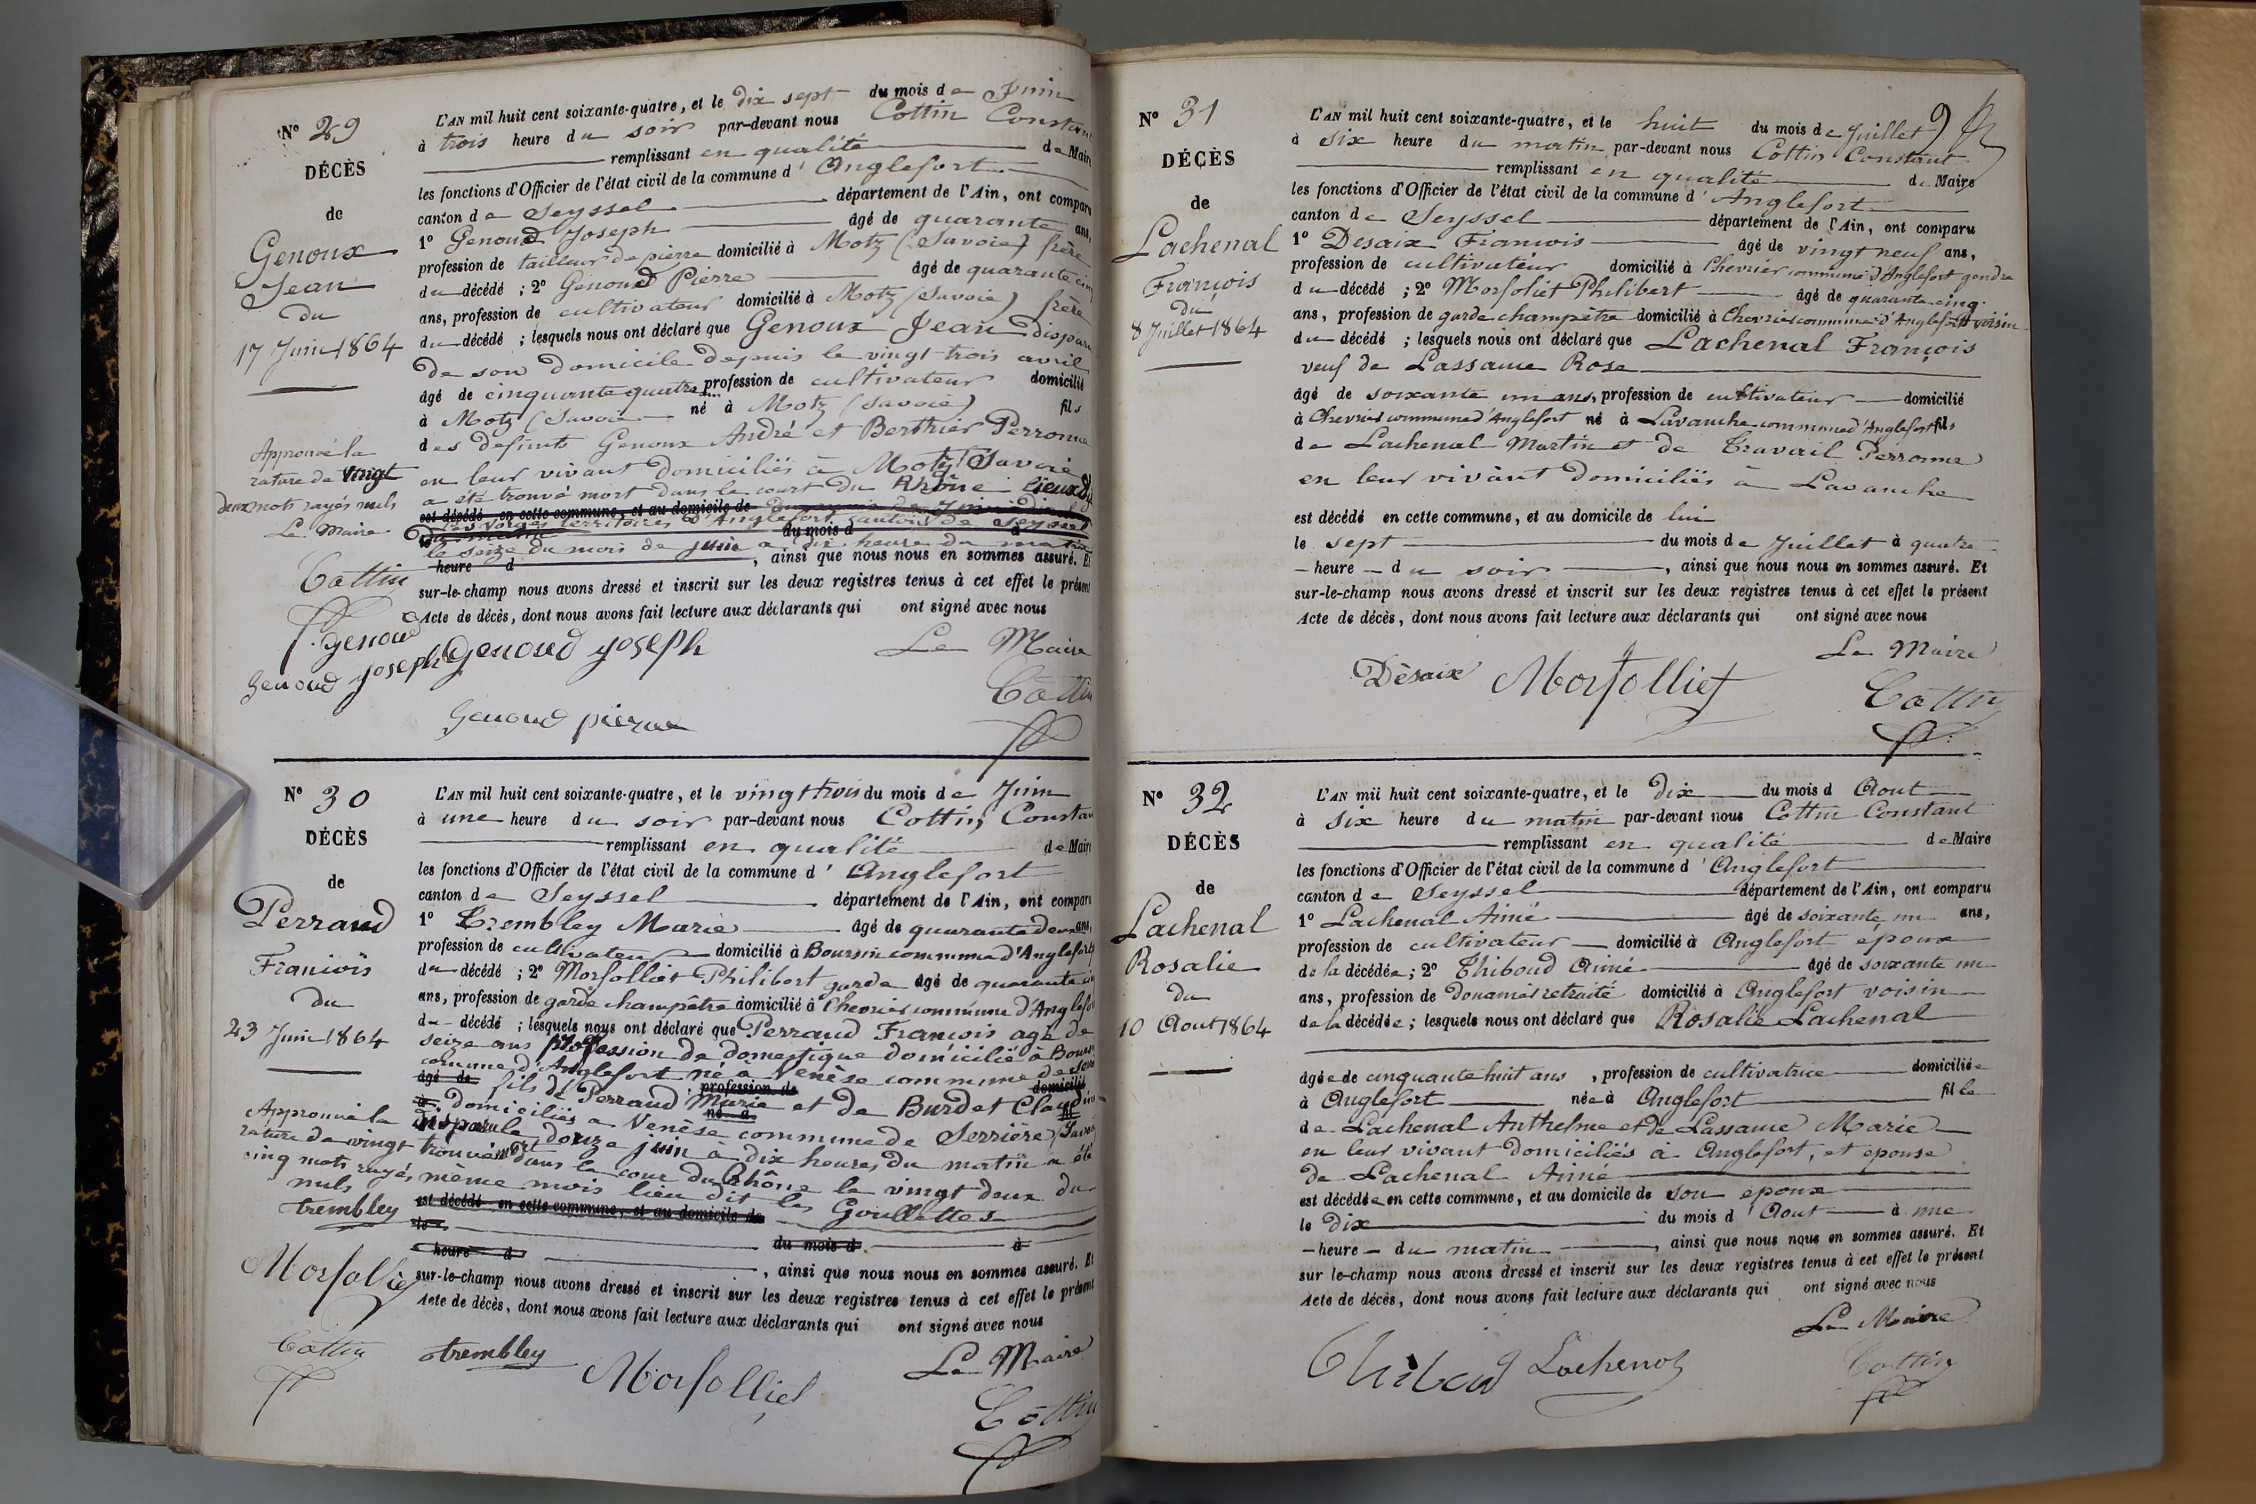 N° 29
DÉCÈS
de
Genoux
Jean
du
17 Juin 1864
Approuvé la
rature de vingt
deux mots rayés nuls
Le Maire
Cottin
L'AN mil huit cent soixante-quatre, et le dix sept du mois de Juin
à trois heure du soir par-devant nous Cottin Constant
remplissant en qualité de Maire
les fonctions d'Officier de l'état civil de la commune d'Anglefort
canton de Seyssel département de l'Ain, ont comparu
1° Genoud Joseph âgé de quarante ans,
profession de tailleur de pierre domicilié à Motz (Savoie) frère
du décédé ; 2° Genoud Pierre âgé de quarante cinq
ans, profession de cultivateur domicilié à Motz (Savoie) frère
du décédé ; lesquels nous ont déclaré que Genoux Jean disparu
de son domicile depuis le vingt trois avril
âgé de cinquante quatre profession de cultivateur domicilié
à Motz (Savoie né à Motz (Savoie) fils
des defunts Genoux André et Berthier Perronne
en leur vivant domiciliés à Motz (Savoie
a été trouvé mort dans le court du Rhône lieux dit
est décédé en cette commune, et au domicile de
territoires d'Anglefort canton de Seyssel
le du mois d à
le seize du mois de juin a dix heure du matin
heure d , ainsi que nous nous en sommes assuré. Et
sur-le-champ nous avons dressé et inscrit sur les deux registres tenus à cet effet le présent
Acte de décès, dont nous avons fait lecture aux déclarants qui ont signé avec nous
P. genoud
Genoud joseph Genoud joseph Le Maire
Cottin
Genoud pierre
N° 30
DÉCÈS
de
Perraud
François
du
23 Juin 1864
Approuvé la
rature de vingt
cinq mots rayés
nuls
trembley
Morfolliet
Cottin
L'AN mil huit cent soixante-quatre, et le vingt trois du mois de Juin
à une heure du soir par-devant nous Cottin Constant
remplissant en qualité de Maire
les fonctions d'Officier de l'état civil de la commune d'Anglefort
canton de Seyssel département de l'Ain, ont comparu
1° Trembley Marie âgé de quarante deux ans,
profession de cultivateur domicilié à Boursin commune d'Anglefort
du décédé ; 2° Morfolliet Philibert garde âgé de quarante cinq
ans, profession de garde champêtre domicilié à Chevrier commune d'Anglefort
du décédé ; lesquels nous ont déclaré que Perraud François agé de
seize ans profession de domestique domicilié à Boursin
commune d'Anglefort né à Venèse commune de
âgé de fils de Perraud Marie et de Burdet Claudine
profession de domicilié
à domiciliés a Venèse commune de Serrière (Savoie
né à fil
disparu le douze juin à dix heures du matin a été
trouvé mort dans le cour du Rhône le vingt deux du
même mois lieu dit les Goullettes
est décédé en cette commune, et au domicile de
le du mois d à
heure d , ainsi que nous nous en sommes assuré. Et
sur-le-champ nous avons dressé et inscrit sur les deux registres tenus à cet effet le présent
Acte de décès, dont nous avons fait lecture aux déclarants qui ont signé avec nous
trembley Morfolliet Le Maire
Cottin
N° 31
DÉCÈS
de
Lachenal
François
du
8 Juillet 1864
L'AN mil huit cent soixante-quatre, et le huit du mois de Juillet 9
à six heure du matin par-devant nous Cottin Constant
remplissant en qualité de Maire
les fonctions d'Officier de l'état civil de la commune d'Anglefort
canton de Seyssel département de l'Ain, ont comparu
1° Desaix François âgé de vingt neuf ans,
profession de cultivateur domicilié à Chevrier commune d'Anglefort gendre
du décédé ; 2° Morfoliet Philibert âgé de quarante cinq
ans, profession de garde champêtre domicilié à Chevrier commune d'Anglefort voisin
du décédé ; lesquels nous ont déclaré que Lachenal François
veuf de Lassame Rose
âgé de soixante un ans, profession de cultivateur domicilié
à Chevrier commune d'Anglefort né à Lavanche commune d'Anglefort fils
de Lachenal Martin et de Travail Perronne
en leur vivant domiciliés à Lavanche
est décédé en cette commune, et au domicile de lui
le sept du mois de Juillet à quatre
heure du soir , ainsi que nous nous en sommes assuré. Et
sur-le-champ nous avons dressé et inscrit sur les deux registres tenus à cet effet le présent
Acte de décès, dont nous avons fait lecture aux déclarants qui ont signé avec nous
Désaix Morfolliet Le Maire
Cottin
N° 32
DÉCÈS
de
Lachenal
Rosalie
du
10 Aout 1864
L'AN mil huit cent soixante-quatre, et le dix du mois d Aout
à six heure du matin par-devant nous Cottin Constant
remplissant en qualité de Maire
les fonctions d'Officier de l'état civil de la commune d'Anglefort
canton de Seyssel département de l'Ain, ont comparu
1° Lachenal Aimé âgé de soixante un ans,
profession de cultivateur domicilié à Anglefort époux
de la décédée ; 2° Thiboud Aimé âgé de soixante un
ans, profession de douanier retraité domicilié à Anglefort voisin
de la décédée ; lesquels nous ont déclaré que Rosalie Lachenal
âgée de cinquante huit ans , profession de cultivatrice domiciliée
à Anglefort née à Anglefort fille
de Lachenal Anthelme et de Lassame Marie
en leur vivant domiciliés à Anglefort, et epouse
de Lachenal Aimé
est décédée en cette commune, et au domicile de son epoux
le dix du mois d'Aout à une
heure du matin , ainsi que nous nous en sommes assuré. Et
sur le-champ nous avons dressé et inscrit sur les deux registres tenus à cet effet le présent
Acte de décès, dont nous avons fait lecture aux déclarants qui ont signé avec nous
Le Maire
Thiboud Lachenal Cottin